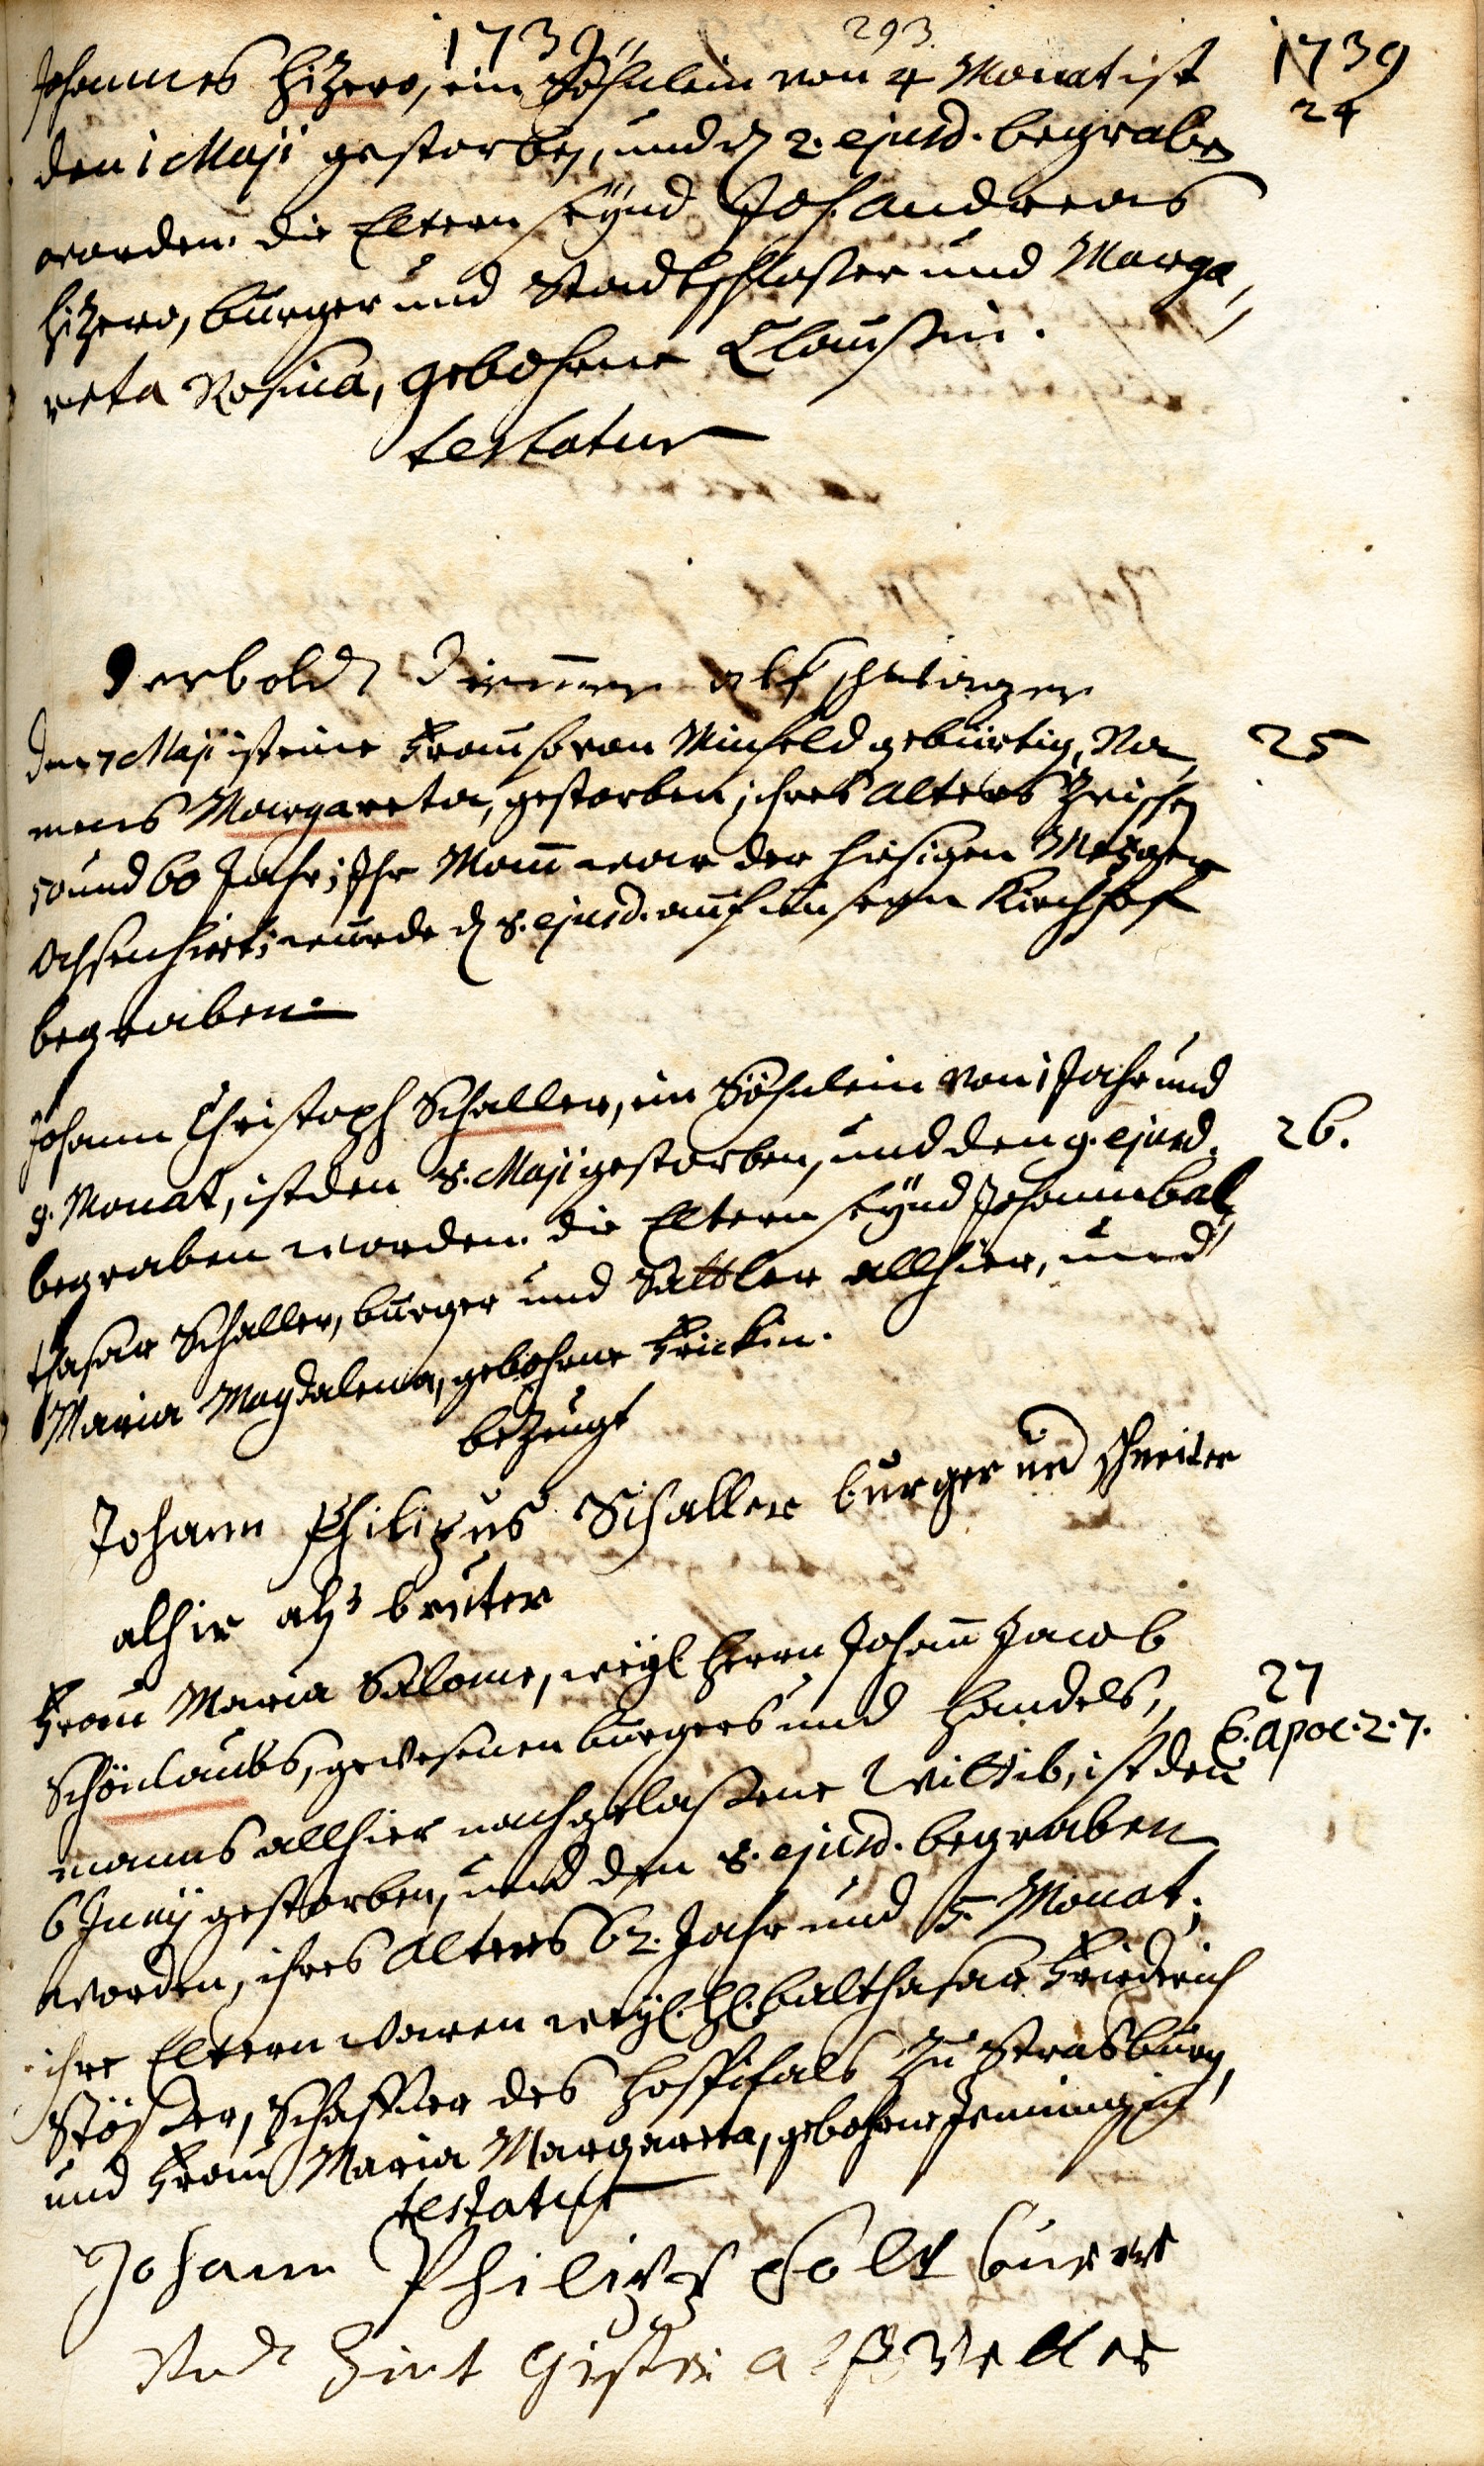 1739
293.
1739
Johannes Hitzero, ein Söhnlein von 4 Monat ist
24
den 1 Maji gestorben, und d 2. ejusd. begraben
worden. die Eltern seÿnd Joh. Andreas
Hitzero, burger und Stadtschlosser und Marga,,
reta Rosina, gebohrne Claussin.
testatur
als schwiger
den 7 Maji ist eine Frau so von Minfeld gebürtig, Na,
25
mens Margareta, gestorben; ihres Alters zwischen
50 und 60 Jahr; Ihr Mann war der hiesigen Metzger
Ochsenhirt; wurde d 8. ejusd. auf unsern Kirchhof
begraben.
Johann Christoph Schaller, ein Söhnlein von 1 Jahr und
26.
9. Monat, ist den 8. Maji gestorben, und den 9. ejusd.
begraben worden. die Eltern seÿnd Johann Bal,,
thasar Schaller, burger und Sattler allhier, und
Maria Magdalena, gebohrne Frickin.
bezeugt
Johann Philipus Schaller burger und schneiter
alhir alß bruter
Frau Maria Salome, weÿl. Herrn Johann Jacob
27
Schönlaubs, gewesenen burgers und Handels,,
C. Apoc. 2. 7.
manns allhier nachgelassene Wittib, ist den
6 Junij gestorben, und den 8. ejusd. begraben
worden, ihres Alters 62. Jahr und 5. Monat;
ihre Eltern waren weÿl. H. Balthasar Friederich
Stösser, Schaffner des Hospitals zu Strasburg,
und Frau Maria Margareta, gebohrne
testatur
Johann Philipp
Vnd alß Vetter